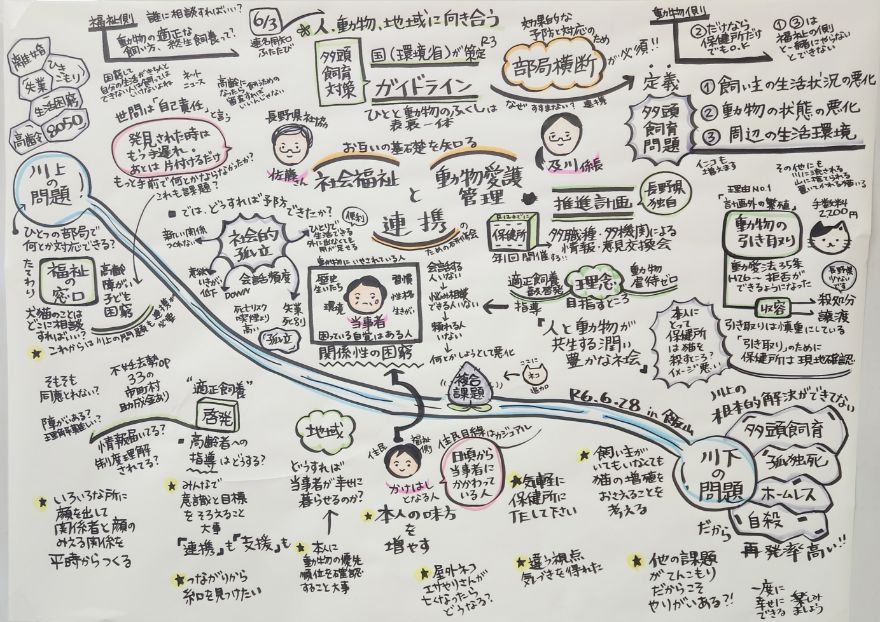 福祉側
誰に相談すればいい?
動物の適正な
飼い方、終生飼養って、
離婚
ひき
こもり
失業
生活困窮
高齢
8050
困窮して
ネット
ニュース
高齢に
世間は「自己責任」と言う
発見された時は
もう手遅れ。
あとは片付けるだけ
もっと手前で何とかならなかったか?
これも課題?
6/3
人、動物、地域に向き合う
多頭
飼育
対策
国(環境省)が策定R3
ガイドライン
ひとと動物のふくしは
表裏一体
効果的な
予防と対応のため
部局横断
が必須!!
なぜ すすまない? 連携
動物側
②だけなら、
保健所だけ
でもO.K
①③は
福祉の側と
一緒にやらない
とできない
定義
多頭
飼育
問題
①飼い主の生活状況の悪化
②動物の状態の悪化
③周辺の生活環境
長野県社協
佐藤さん
お互いの基石楚を知る
社会福祉
と
動物愛護
管理
連携
のための
及川係長
推進計画
長野県
独自
保健所
年1回開催する!!
多職種・多機関による
情報・意見交換会
適正飼養
普及啓発
指導
理念
目指すところ
動物
虐待ゼロ
「人と動物が
共生する潤い
豊かな社会」
その他にも
理由NO.1
計画外の繁殖
動物の
引き取り
手数料
2,200円
動愛法35条
H26~拒否が
できるようになった
収容
殺処分
譲渡
引き取りは慎重にしている
「引き取り」のために
保健所は現地確認
本人に
とって
保健所
は猫を
殺すところ?
イメージ悪い
川上の
問題
ひとつの部局で
何とか対応できる?
たてわり
福祉の
窓口
高齢
障がい
子ども
困窮
犬猫のことは
どこに相談
すればいい?
これからは川上の問題も連携が
必要
では、どうすれば予防できたか?
社会的
孤立
会話頻度
DOWN
意欲
低下
死亡リスク
喫煙より
高い
失業
死別
孤立
動物にいやされている人
歴史
生いたち
環境
習慣
性格
生きがい
当事者
困っている自覚はある人
関係性の困窮
会話する
人いない
悩み相談
できる人いない
頼れる人
いない
何とかしようとして悪化
複合
課題
ここに
ネコ
追加
R6.6.28 in 飯山
川下
の
問題
川上の
根本的解決ができてない
多頭飼育
孤独死
ホームレス
自殺
だから
再発率高い!!
そもそも
同意とれない?
不妊去勢op
33の
市町村
助成金あり
障がいある?
理解が難しい?
情報届いてる?
制度理解
されてる?
"適正飼養"
啓発
高齢者への
指導はどうする?
地域
どうすれば
当事者が幸せに
暮らせるのか?
住民
福祉側
かけはし
となる人
住民目線はカジュアル
日頃から
当事者に
かかわって
いる人
本人の味方
を
増やす
気軽に
保健所に
TELして下さい
飼い主が
いてもいなくても
猫の増殖を
おさえることを
考える
いろいろな所に
顔を出して
関係者と顔の
みえる関係を
平時からつくる
みんなで
意識と目標
をそろえること
大事
「連携」も「支援」も
つながりから
糸口を見つけたい
本人に
動物の優先
順位を確認
すること大事
屋外ネコ
エサやりさんが
亡くなったら
どうなる?
違う視点
気づきを得れた
他の課題
がてんこもり
だからこそ
やりがいある?!
一度に
幸せに
できる
楽しみ
ましょう